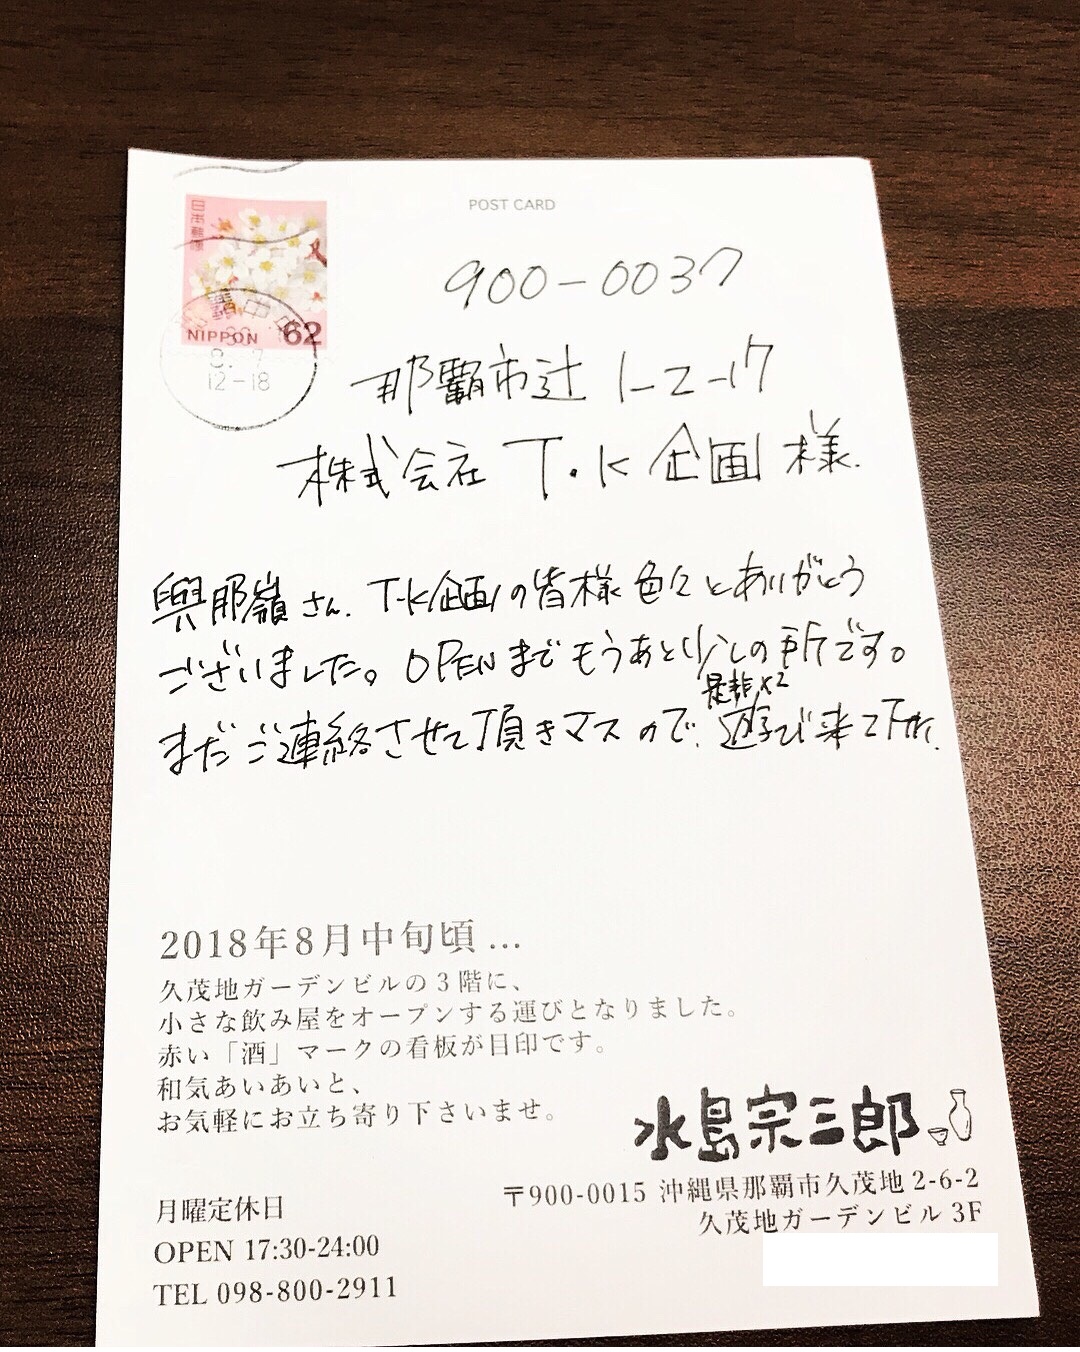 POST CARD
日本郵便
NIPPON 62
覇中央
30
8. 7
12-18
900-0037
那覇市辻 1-2-17
株式会社 T.K 企画 様.
與那嶺さん. T.K企画の皆様 色々とありがとう
ございました。OPENまで もうあと少しの所です。
まだ ご連絡させて頂きマスので. 是非×2 遊び来て下さい.
2018年8月中旬頃…
久茂地ガーデンビルの3階に、
小さな飲み屋をオープンする運びとなりました。
赤い「酒」マークの看板が目印です。
和気あいあいと、
お気軽にお立ち寄り下さいませ。
水島宗三郎
〒900-0015 沖縄県那覇市久茂地 2-6-2
久茂地ガーデンビル 3F
月曜定休日
OPEN 17:30-24:00
TEL 098-800-2911